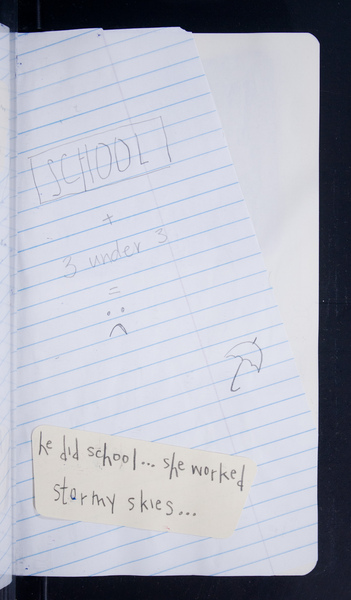 SCHOOL
+
3 under 3
=
:(
he did school... she worked
stormy skies...